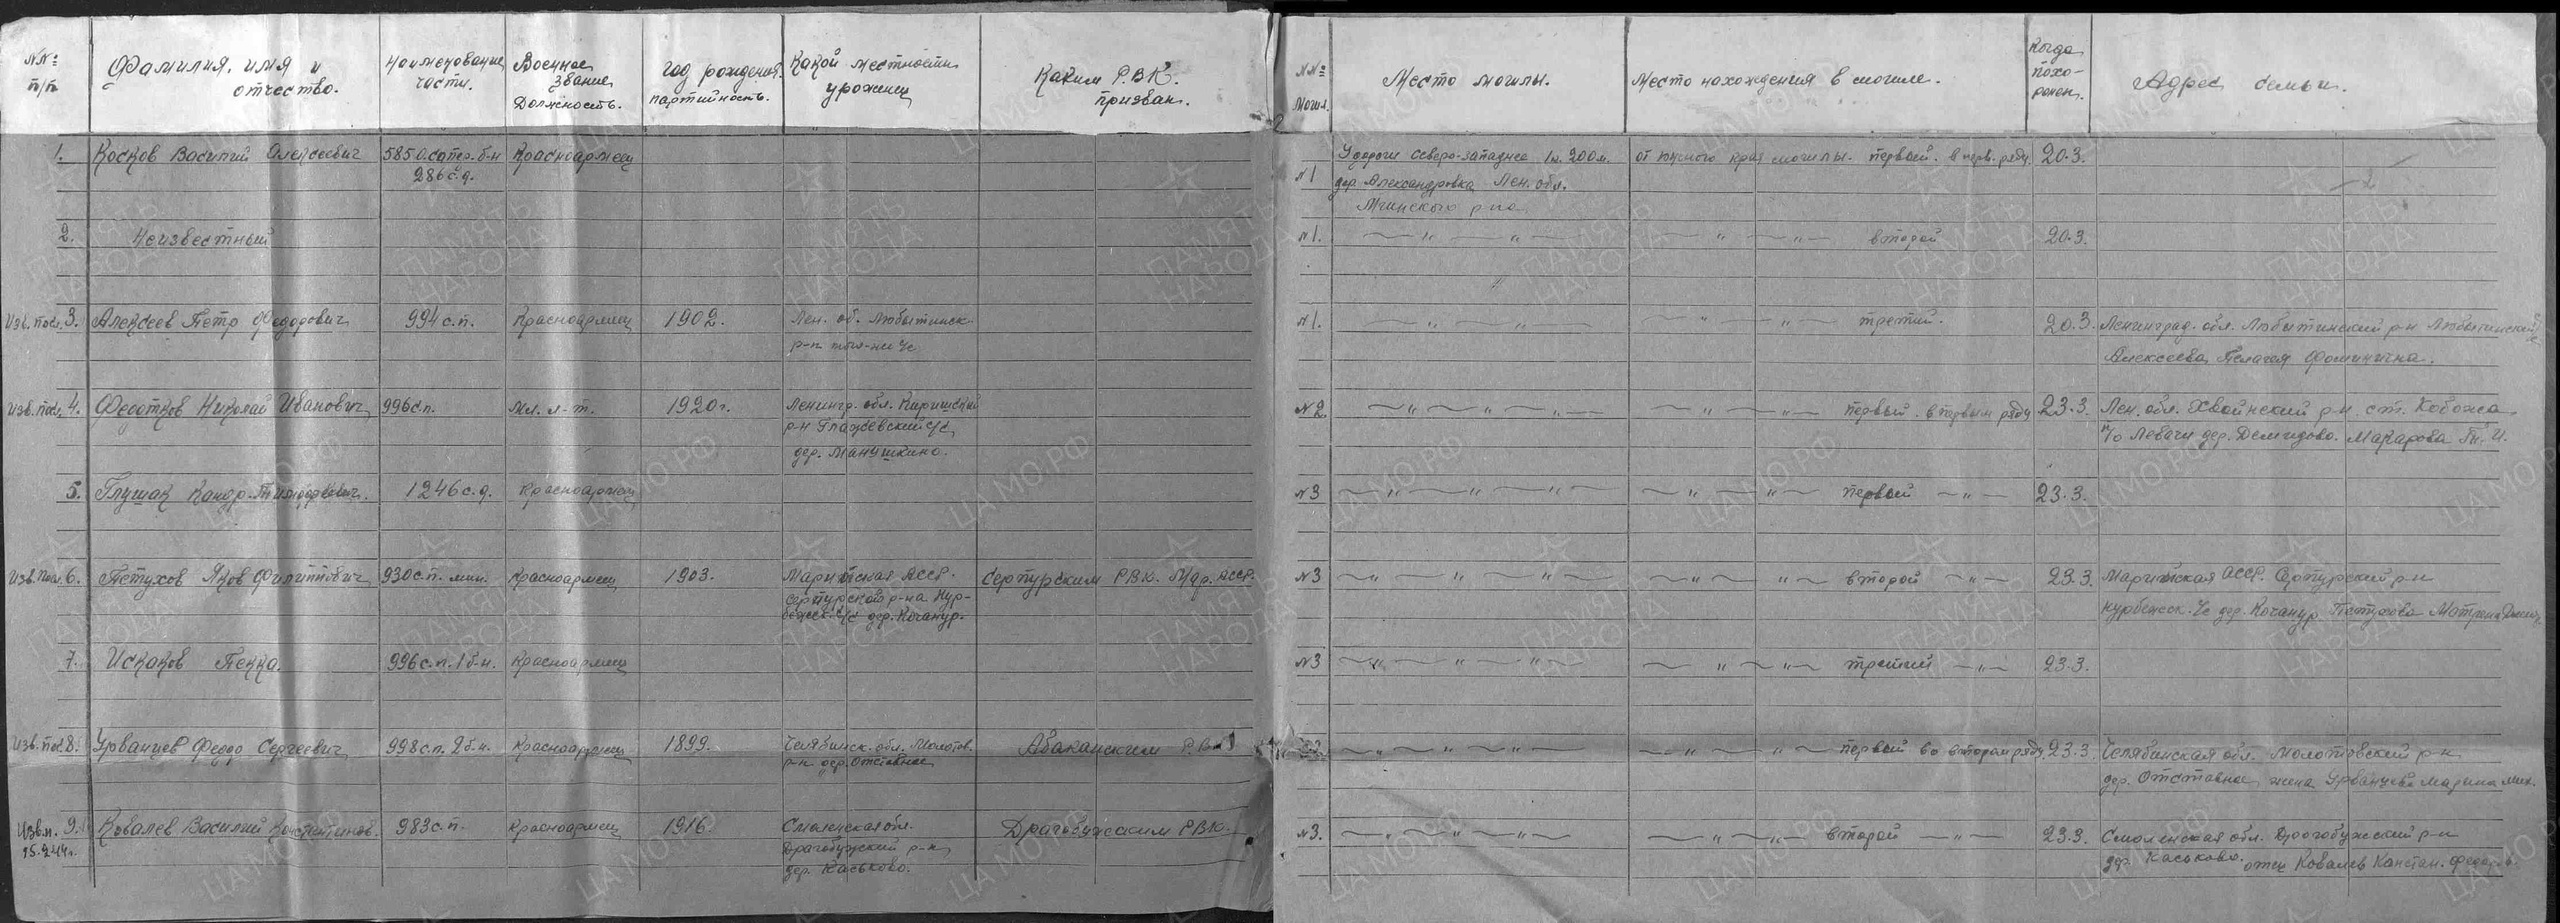 №№ п/п
Фамилия, имя и отчество.
Наименование части.
Военное звание Должность.
год рождения партийность.
Какой местности уроженец
Каким Р.В.К. призван.
№№ могил.
Место могилы.
Место нахождения в могиле.
Когда похоронен.
Адрес семьи.
1. Косков Василий Алексеевич 585 О.сапер. б-н Красноармеец
286 с.д.
№1 У дороги северо-западнее 1 к. 200 м. от южного края могилы. первый. в перв. ряду 20.3.
дер. Александровка Лен. обл.
Мгинского р-на
2. Неизвестный №1. второй 20.3.
Изв. посл. 3. Алексеев Петр Федорович 994 с.п. Красноармеец 1902. Лен. об. Любытинск.
№1. третий. 20.3. Ленинград. обл. Любытинский р-н Любытинский
Алексеева Пелагея Фоминична.
Изв. посл. 4. Федотков Николай Иванович 996 с.п. Мл. л-т. 1920 г. Ленингр. обл. Киришский
р-н Глажевский с/с
дер. Манушкино.
№2 первый. в первом ряду 23.3. Лен. обл. Хвойнский р-н ст. Кобожа
п/о Левочи дер. Демидово. Макарова
5. Глушак Кондр. 1246 с.д. Красноармеец
№3 первый 23.3.
Изв. посл. 6. Петухов Яков Филиппович 930 с.п. мин. Красноармеец 1903. Марийская АССР. Сернурским Р.В.К. Мар. АССР.
Сернурской р-на Кур-
бежск. с/с дер. Кочанур.
№3 второй 23.3. Марийская АССР. Сернурский р-н
Курбежск. с/с дер. Кочанур Петухова Матрена
7. Искаков Пекка. 996 с.п. 1 б-н. Красноармеец
№3 третий 23.3.
Изв. посл. 8. Урванцев Федор Сергеевич 998 с.п. 2 б-н. Красноармеец 1899. Челябинск. обл. Молотов. Абаканским Р.В.К.
р-н дер. Отставное
первый во втором ряду 23.3. Челябинская обл. Молотовский р-н
дер. Отставное жена Урванцева Марина Мих.
Изв. п. 9. Ковалев Василий Константинов. 983 с.п. Красноармеец 1916. Смоленская обл. Драгобужским РВК.
15.2.44 г.
Драгобужский р-н
дер. Каськово.
№3. второй 23.3. Смоленская обл. Дрогобужский р-н
дер. Каськово. отец Ковалев Констан. Федоров.
ПАМЯТЬ НАРОДА
ЦАМО.РФ